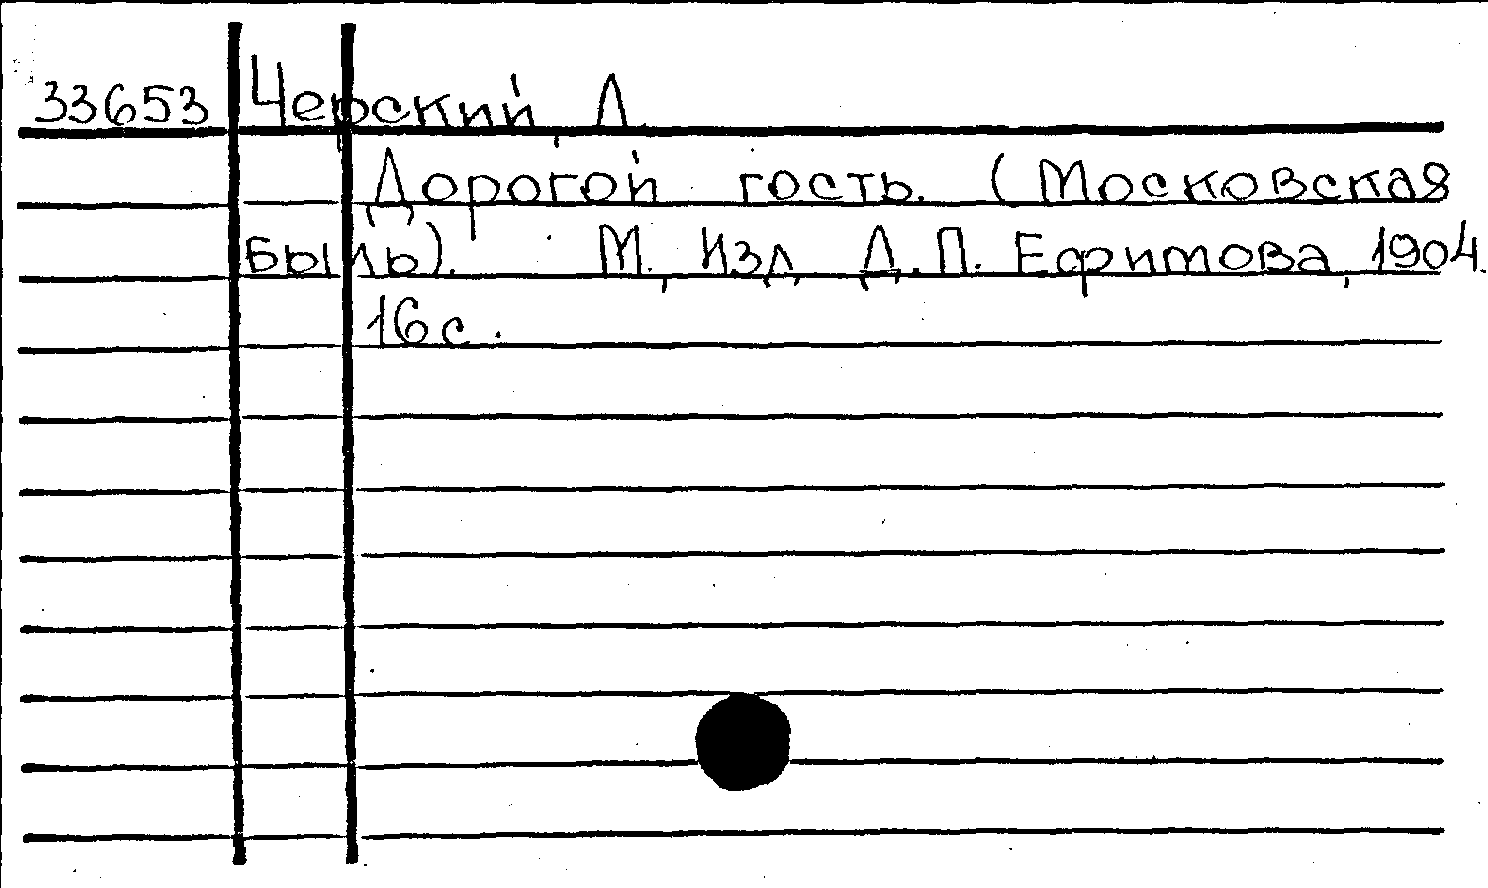 33653 Черский, Л.
Дорогой гость. (Московская
быль). М., Изд. Д.П. Ефимова, 1904.
16 с.